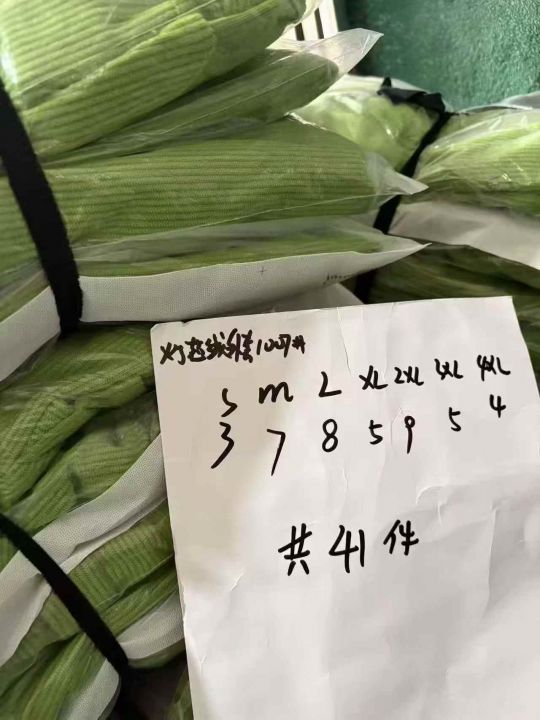 灯芯绒套1007#
S M L XL 2XL 3XL 4XL
3 7 8 5 9 5 4
共41件